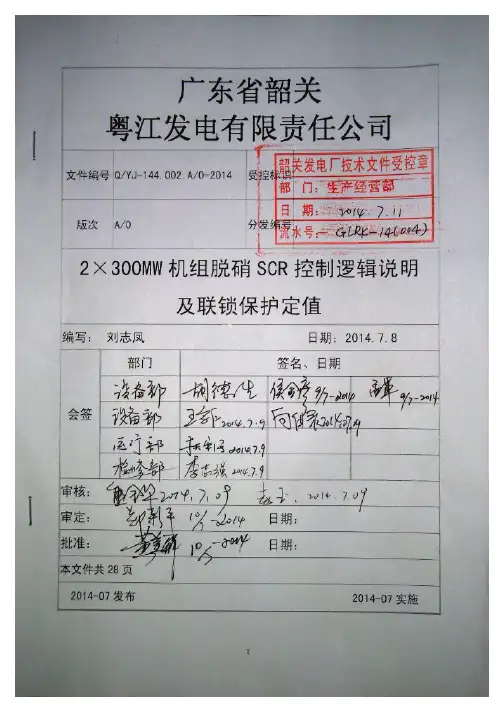 广东省韶关
粤江发电有限责任公司
文件编号 Q/YJ-144.002.A/0-2014 受控标识
韶关发电厂技术文件受控章
部 门：生产经营部
日 期：2014.7.11
流水号：GLRK-14(004)
版次 A/0 分发编号
2×300MW 机组脱硝 SCR 控制逻辑说明
及联锁保护定值
编写： 刘志凤 日期：2014.7.8
部门 签名、日期
会签
设备部 9/7-2014 9/7-2014
设备部 2014.7.9
运行部 2014.7.9
检修部 李志强 2014.7.9
审核： 2014.7.09 2014.7.09
审定： 郑新平 10/7-2014 日期：
批准： 10/7-2014 日期：
本文件共 28 页
2014-07 发布 2014-07 实施
1